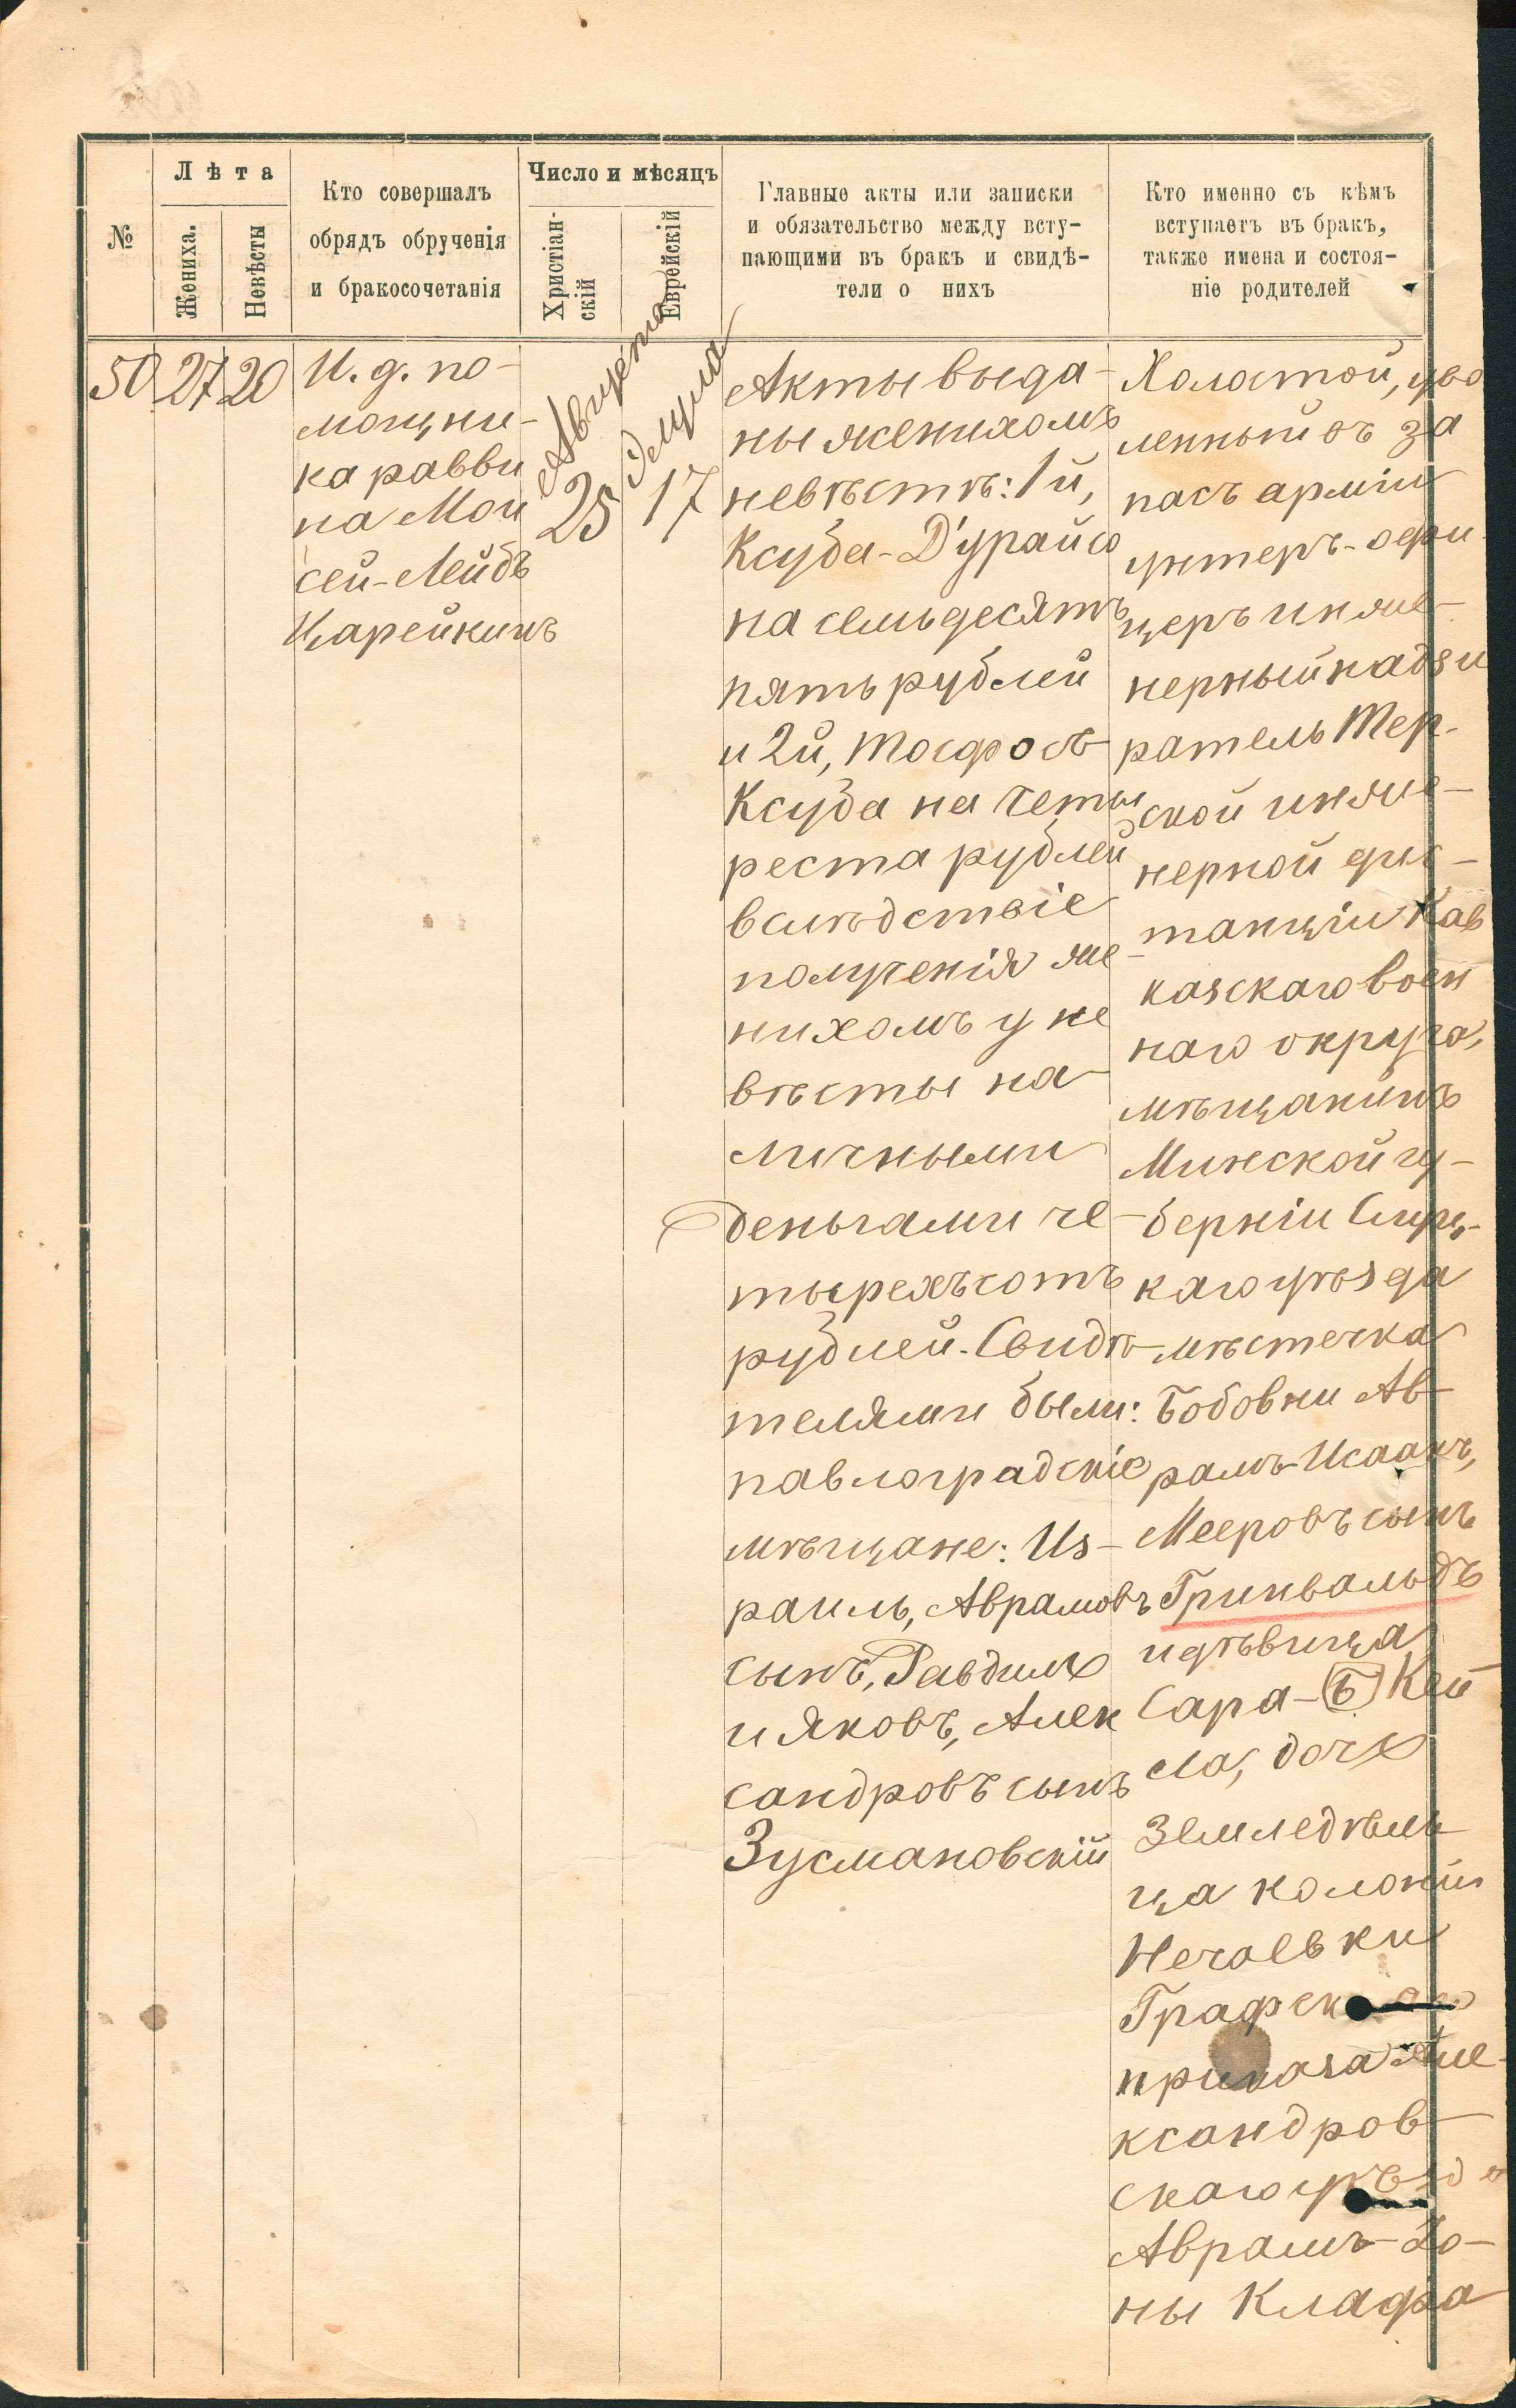 №
Лѣта
Жениха.
Невѣсты
Кто совершалъ
обрядъ обрученія
и бракосочетанія
Число и мѣсяцъ
Христіан-
скій
Еврейскій
Главные акты или записки
и обязательство между всту-
пающими въ бракъ и свидѣ-
тели о нихъ
Кто именно съ кѣмъ
вступаетъ въ бракъ,
также имена и состоя-
ніе родителей
50
27
20
И. д. по-
мощни-
ка равви
на Мои
сей-Лейбъ
Царейкинъ
Августа
25
Элула
17
Акты выда-
ны женихомъ
невѣстѣ: 1й,
Ксуба-Д'урайсо
на семьдесятъ
пять рублей
и 2й, Тосфосъ
Ксуба на четы
реста рублей
вслѣдствіе
полученія же-
нихомъ у не
вѣсты на-
личными
деньгами че-
тырехъсотъ
рублей. Свидѣ-
телями были:
павлоградскіе
мѣщане: Из-
раиль, Аврамовъ
сынъ,
и Яковъ, Алек
сандровъ сынъ
Зусмановскій
Холостой, уво
ленный въ за
пасъ арміи
унтеръ-офи-
церъ инже-
нерный надзи
ратель Тер-
ской инже-
нерной дис-
танціи Кав
казскаго воен
наго округа,
мѣщанинъ
Минской гу-
берніи Слуц-
каго уѣзда
мѣстечка
Бобовни Ав-
рамъ-Исаакъ,
Мееровъ сынъ
Гринвальдъ
и дѣвица
Сара-Б Кей
ла, дочь
земледѣль
ца колоніи
Нечаевки
Графскаго
приказа Але-
ксандров-
скаго уѣзда
Аврамъ-Зо-
ны Клафа